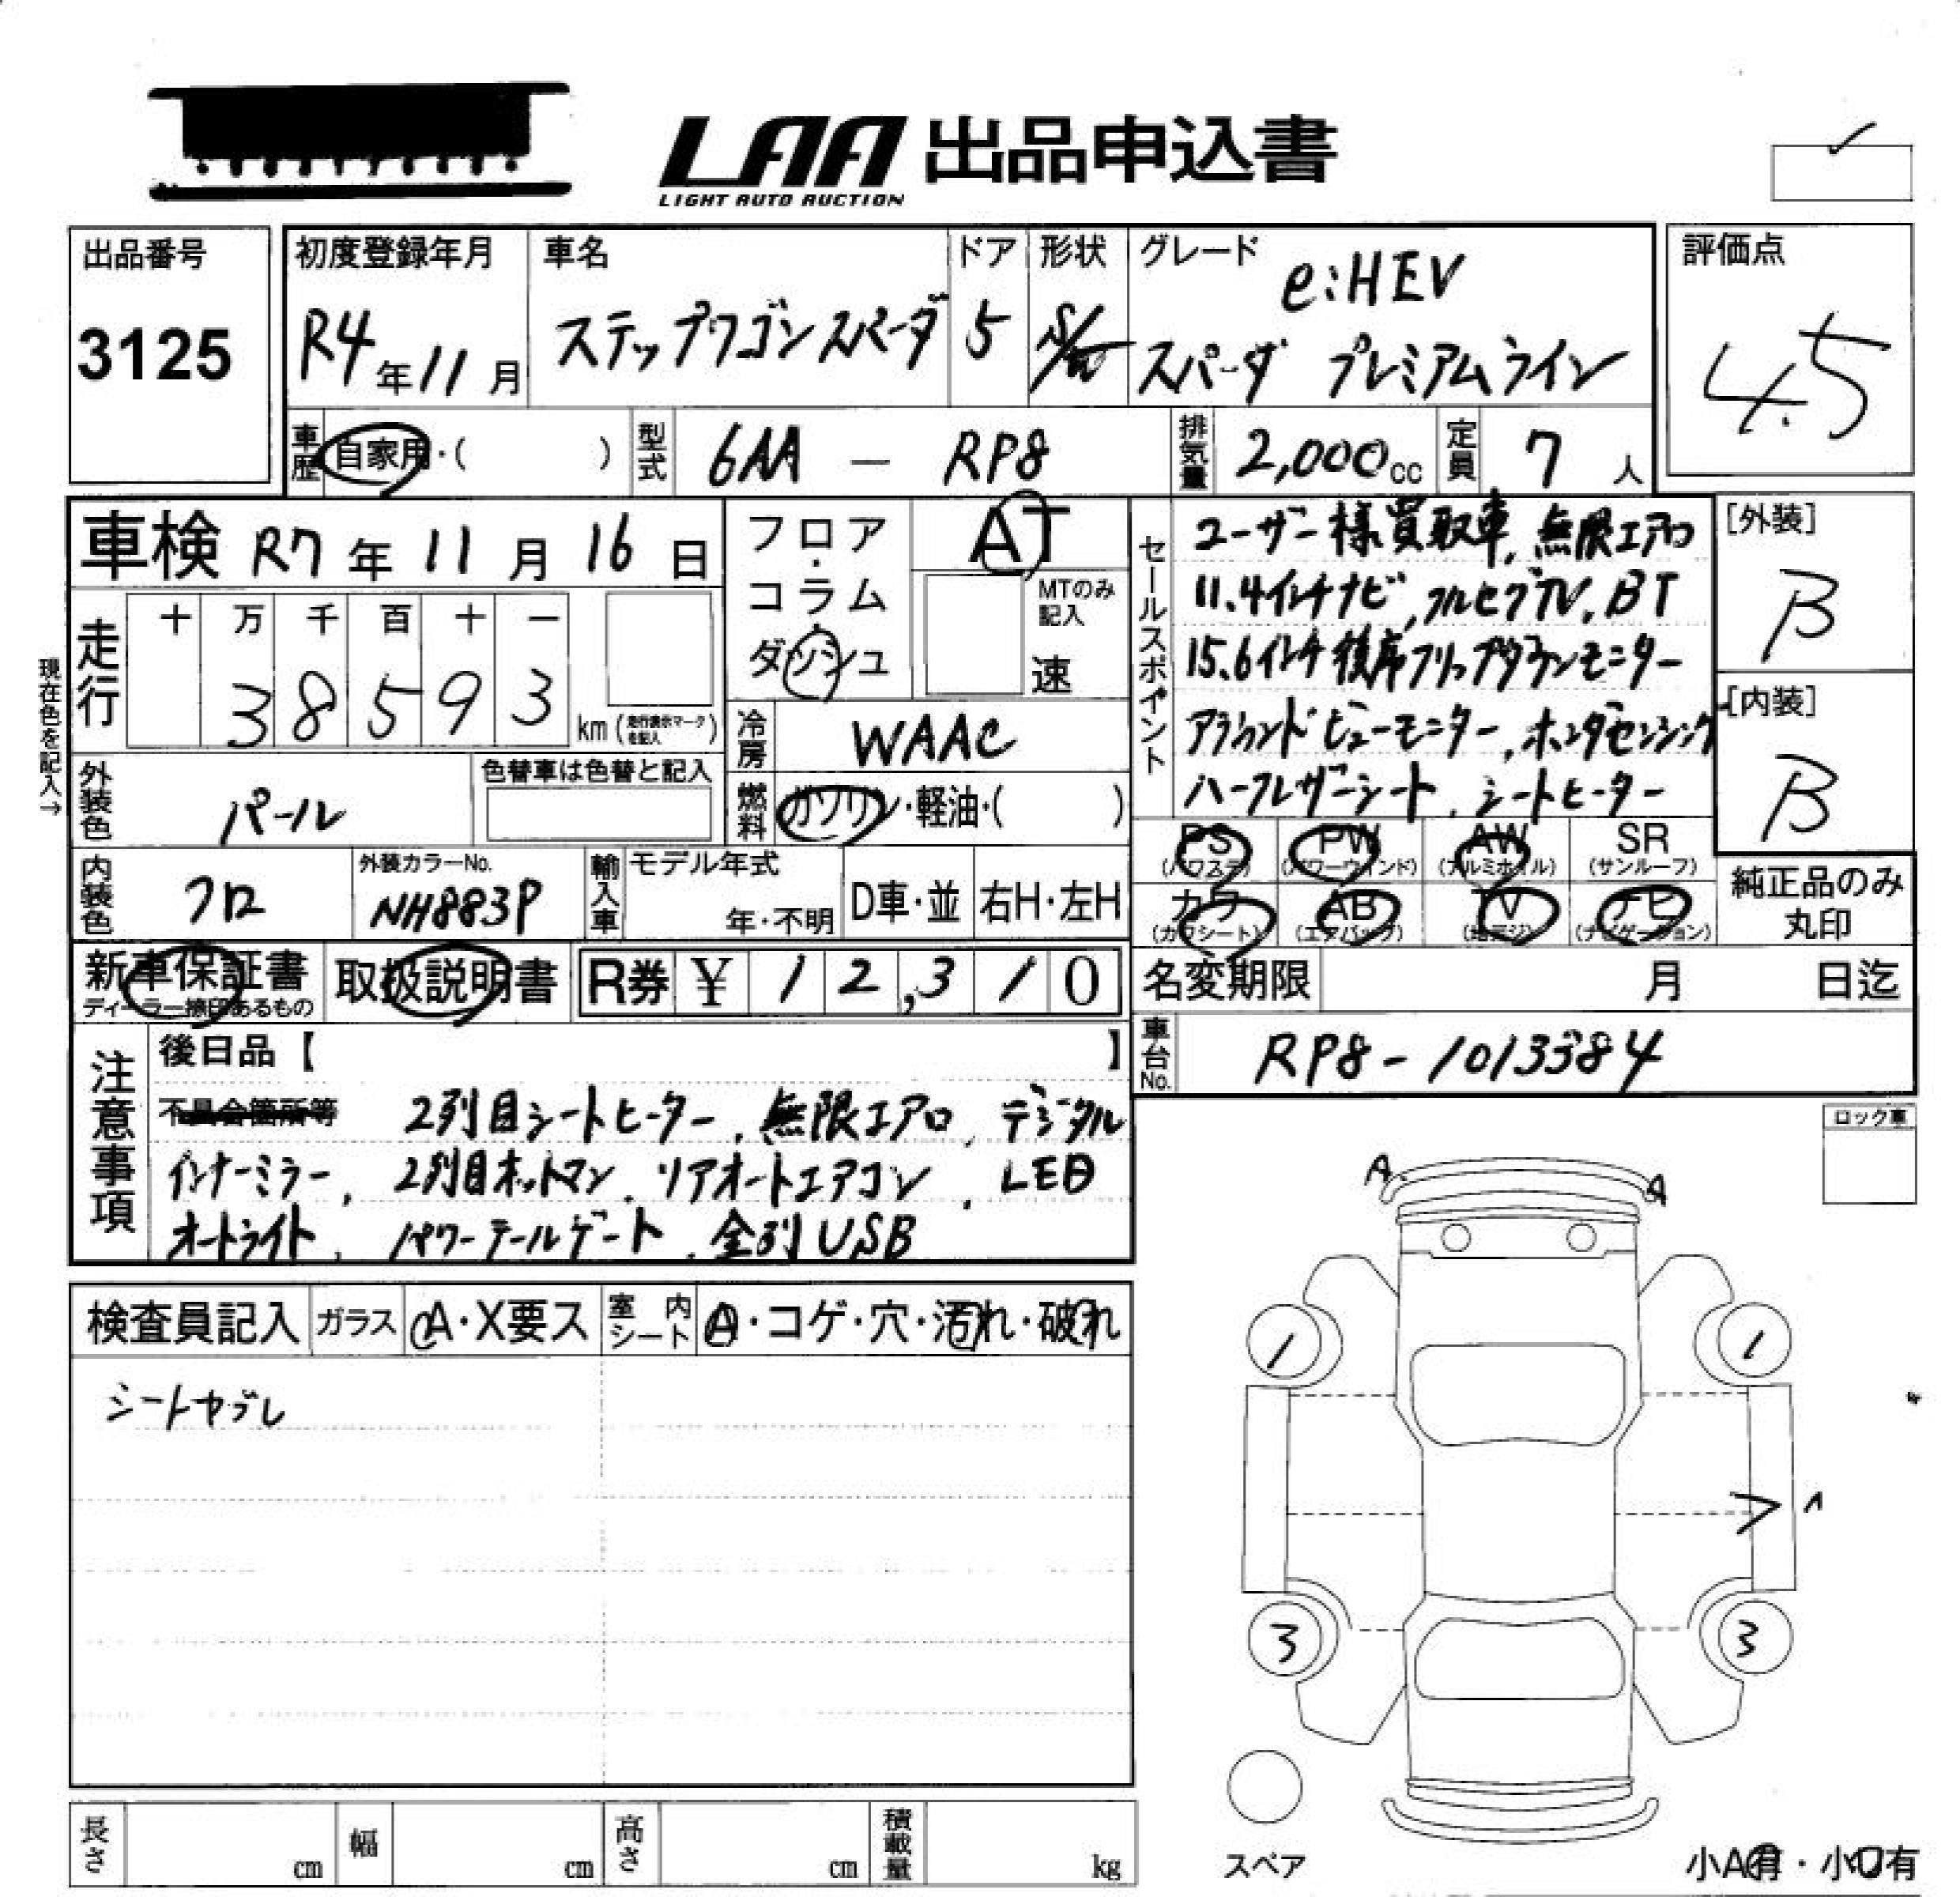 LAA 出品申込書
LIGHT AUTO AUCTION
出品番号
3125
初度登録年月
R4年11月
車名
ステップワゴンスパーダ
ドア
5
形状
S/W
グレード
e:HEV
スパーダ プレミアムライン
評価点
4.5
車歴
自家用・( )
型式
6AA - RP8
排気量
2,000cc
定員
7人
車検 R7年11月16日
フロア・コラム・ダッシュ
AT
MTのみ記入
速
走行
十 万 千 百 十 一
3 8 5 9 3
km (走行表示マークを記入)
現在色を記入→
冷房
WAAC
外装色
パール
色替車は色替と記入
燃料
ガソリン・軽油・( )
内装色
クロ
外装カラーNo.
NH883P
輸入車
モデル年式
年・不明
D車・並
右H・左H
セールスポイント
ユーザー様買取車, 無限エアロ
11.4インチナビ, フルセグTV, BT
15.6インチ後席フリップダウンモニター
アラウンドビューモニター, ホンダセンシング
ハーフレザーシート, シートヒーター
[外装]
B
[内装]
B
PS (パワステ)
PW (パワーウインド)
AW (アルミホイル)
SR (サンルーフ)
カワ (カワシート)
AB (エアバッグ)
TV (地デジ)
ナビ (ナビゲーション)
純正品のみ丸印
新車保証書
ディーラー捺印あるもの
取扱説明書
R券 ¥ 12,310
名変期限 月 日迄
車台No.
RP8-1013384
注意事項
後日品【 】
不具合箇所等 2列目シートヒーター, 無限エアロ, デジタル
インナーミラー, 2列目オットマン, リアオートエアコン, LED
オートライト, パワーテールゲート, 全列USB
ロック車
検査員記入
ガラス
A・X要ス
室内シート
A・コゲ・穴・汚れ・破れ
シートヤブレ
A
A
1
1
3
3
スペア
小A有・小凹有
長さ cm
幅 cm
高さ cm
積載量 kg